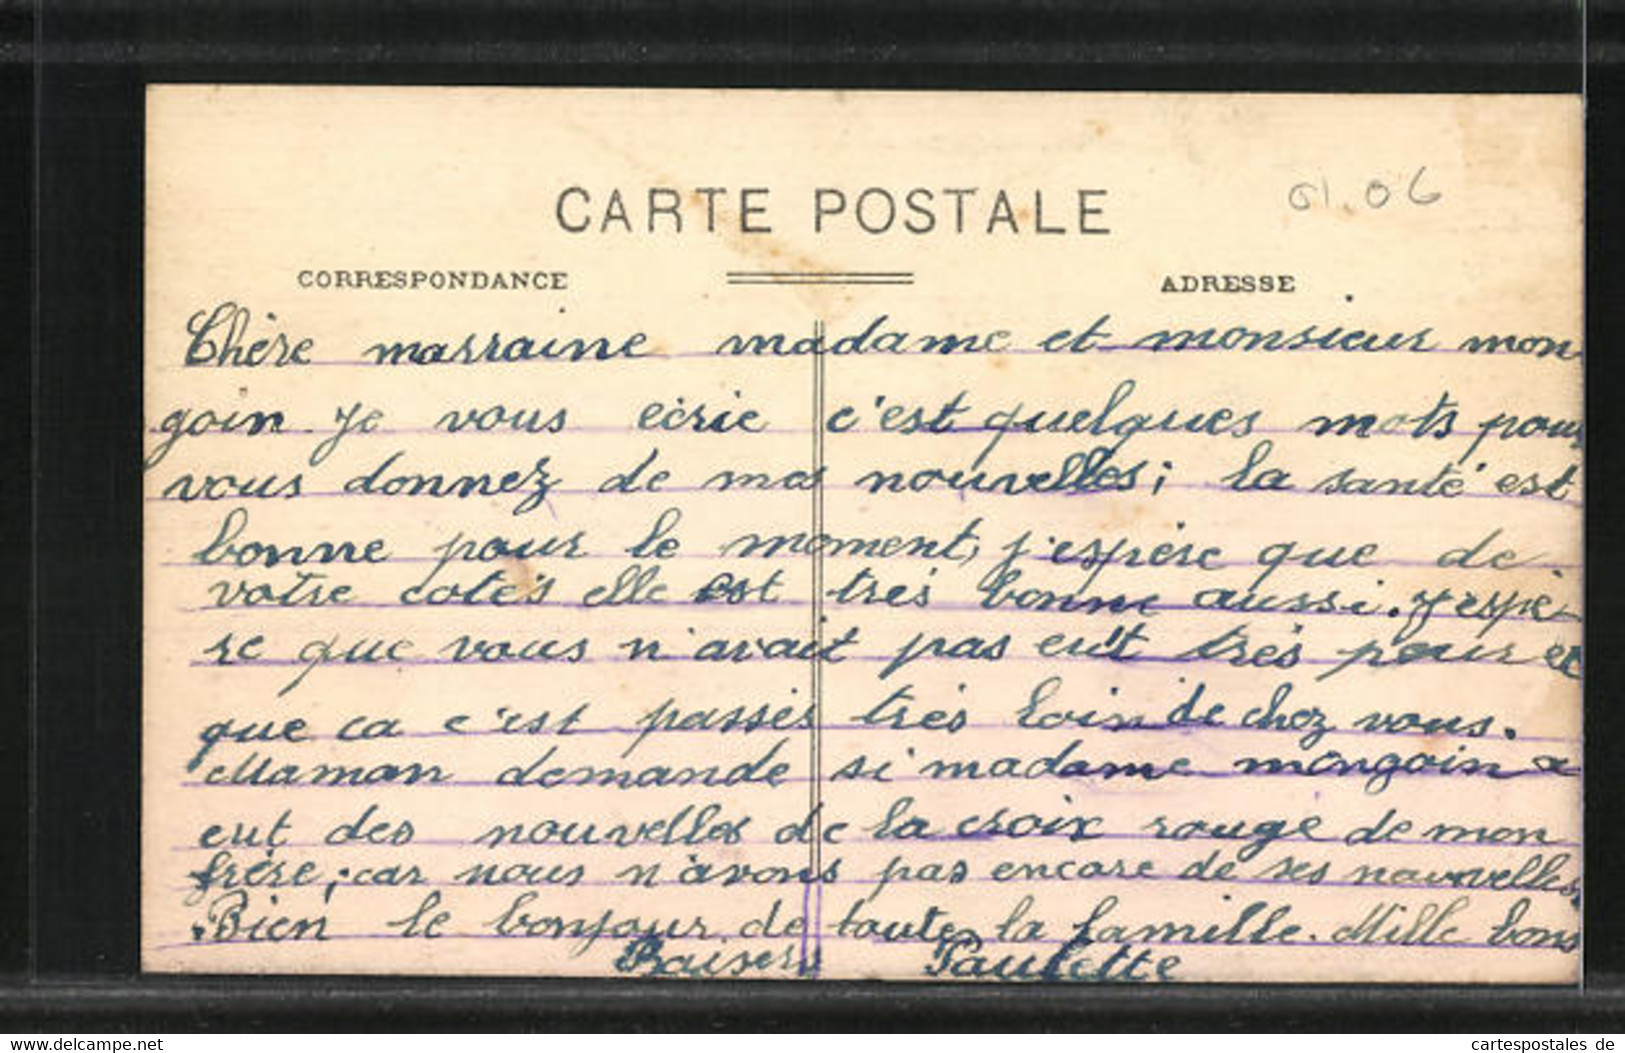 CARTE POSTALE
01.06
CORRESPONDANCE
ADRESSE
Chère marraine madame et monsieur mon-
goin. Je vous ecrie c'est quelques mots pour
vous donnez de mes nouvelles; la santé est
bonne pour le moment, j'espère que de
votre cotés elle est très bonne aussi. J'espè-
re que vous n'avait pas eut très peur
que ca c'est passés très loin de chez vous.
Maman demande si madame mongoin a
eut des nouvelles de la croix rouge de mon
frère; car nous n'avons pas encore de ses nouvelles.
Bien le bonjour de toute la famille. Mille bons
Baisers Paulette
www.cartespostales.de
cartespostales de